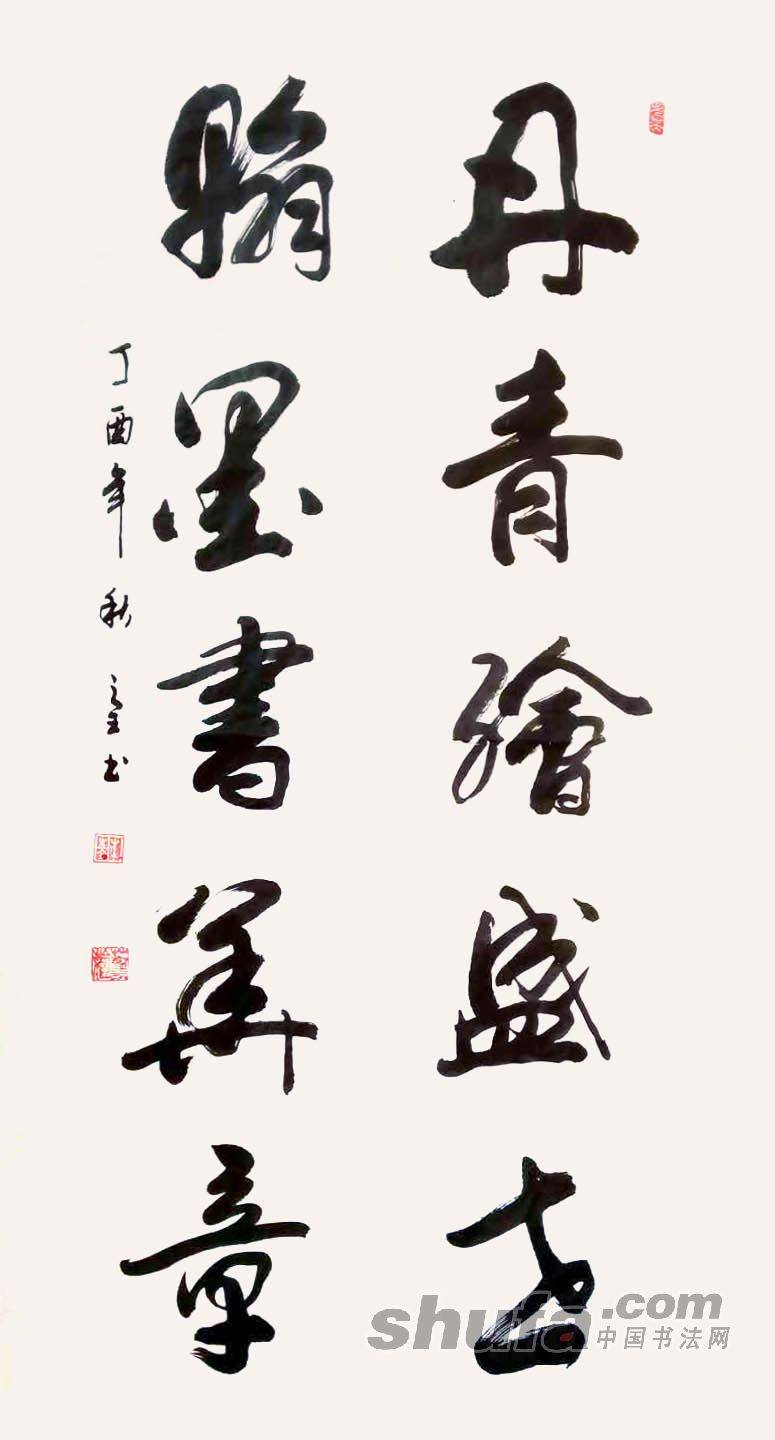 丹青繪盛世
翰墨書華章
丁酉年秋 书
shufa.com
中国书法网